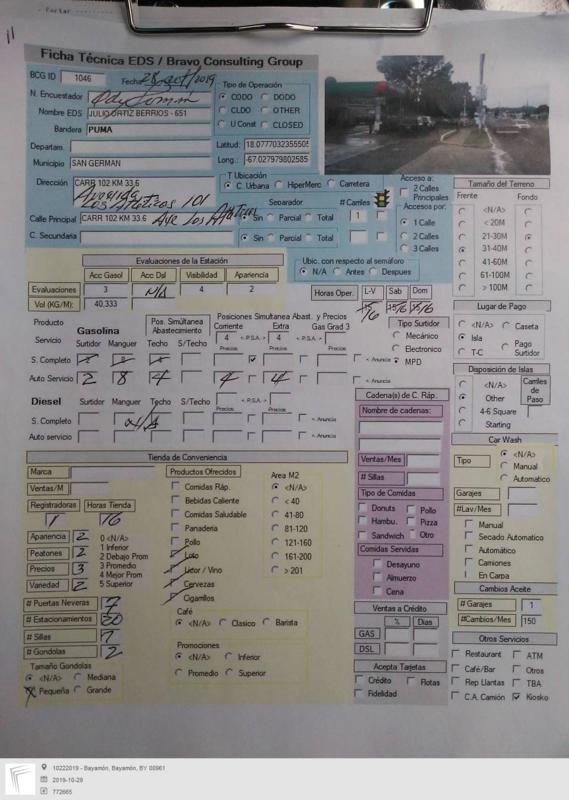 Ficha Técnica EDS / Bravo Consulting Group
BCG ID 1046 Fecha 28 oct/2019
N. Encuestador
Nombre EDS JULIO ORTIZ BERRIOS - 651
Bandera PUMA
Tipo de Operación
CODO DODO
CLDO OTHER
U Const CLOSED
Departam.
Municipio SAN GERMAN
Latitud: 18.0777032355505
Long.: -67.027979802585
Dirección CARR 102 KM 33.6
Avenida Los Atleticos 101
T Ubicación
C. Urbana HiperMerc Carretera
Calle Principal CARR 102 KM 33.6 Ave Los Atleticos
C. Secundaria
Separador
Sin Parcial Total
Sin Parcial Total
# Carriles
1
Acceso a:
2 Calles Principales
Accesos por:
1 Calle
2 Calles
3 Calles
Tamaño del Terreno
Frente Fondo
<N/A>
< 20M
21-30M
31-40M
41-60M
61-100M
> 100M
Evaluaciones de la Estación
Acc Gasol Acc Dsl Visibilidad Apariencia
Evaluaciones 3 N/A 4 2
Vol (KG/M): 40.333
Ubic. con respecto al semáforo
N/A Antes Despues
Horas Oper. L-V Sab Dom
Lugar de Pago
<N/A> Caseta
Isla
T-C Pago Surtidor
Producto
Servicio
Gasolina
Surtidor Manguer
Pos. Simúltanea Abastecimiento
Techo S/Techo
Posiciones Simultanea Abast. y Precios
Corriente Extra Gas Grad 3
4 < P.S.A.> 4 < P.S.A.>
Precios Precios Precios
S. Completo < Anuncia
Auto Servicio 2 8 4 4 4 < Anuncia
Tipo Surtidor
Mecánico
Electronico
MPD
Diesel
Surtidor Manguer Techo S/Techo < P.S.A.>
Precios
S. Completo N/A < Anuncia
Auto servicio < Anuncia
Disposición de Islas
<N/A>
Other
4-6 Square
Starting
Carriles de Paso
Cadena(s) de C. Ráp.
Nombre de cadenas:
Ventas/Mes
# Sillas
Tipo de Comidas
Donuts Pollo
Hambu. Pizza
Sandwich Otro
Comidas Servidas
Desayuno
Almuerzo
Cena
Car Wash
Tipo
<N/A>
Manual
Automatico
Garajes
#Lav/Mes
Manual
Secado Automatico
Automático
Camiones
En Carpa
Tienda de Conveniencia
Marca
Ventas/M
Registradoras Horas Tienda
1 16
Apariencia 2
Peatones 2
Precios 3
Variedad 2
0 <N/A>
1 Inferior
2 Debajo Prom
3 Promedio
4 Mejor Prom
5 Superior
# Puertas Neveras 7
# Estacionamientos
# Sillas 7
# Gondolas 2
Tamaño Gondolas
<N/A> Mediana
Pequeña Grande
Productos Ofrecidos
Comidas Ráp.
Bebidas Caliente
Comidas Saludable
Panaderia
Pollo
Loto
Licor / Vino
Cervezas
Cigarillos
Area M2
<N/A>
< 40
41-80
81-120
121-160
161-200
> 201
Café
<N/A> Clasico Barista
Promociones
<N/A> Inferior
Promedio Superior
Ventas a Crédito
% Dias
GAS
DSL
Acepta Tarjetas
Crédito Flotas
Fidelidad
Cambios Aceite
# Garajes 1
#Cambios/Mes 150
Otros Servicios
Restaurant ATM
Café/Bar Otros
Rep Llantas TBA
C.A. Camión Kiosko
10222019 - Bayamón, Bayamón, BY 00961
2019-10-29
772665